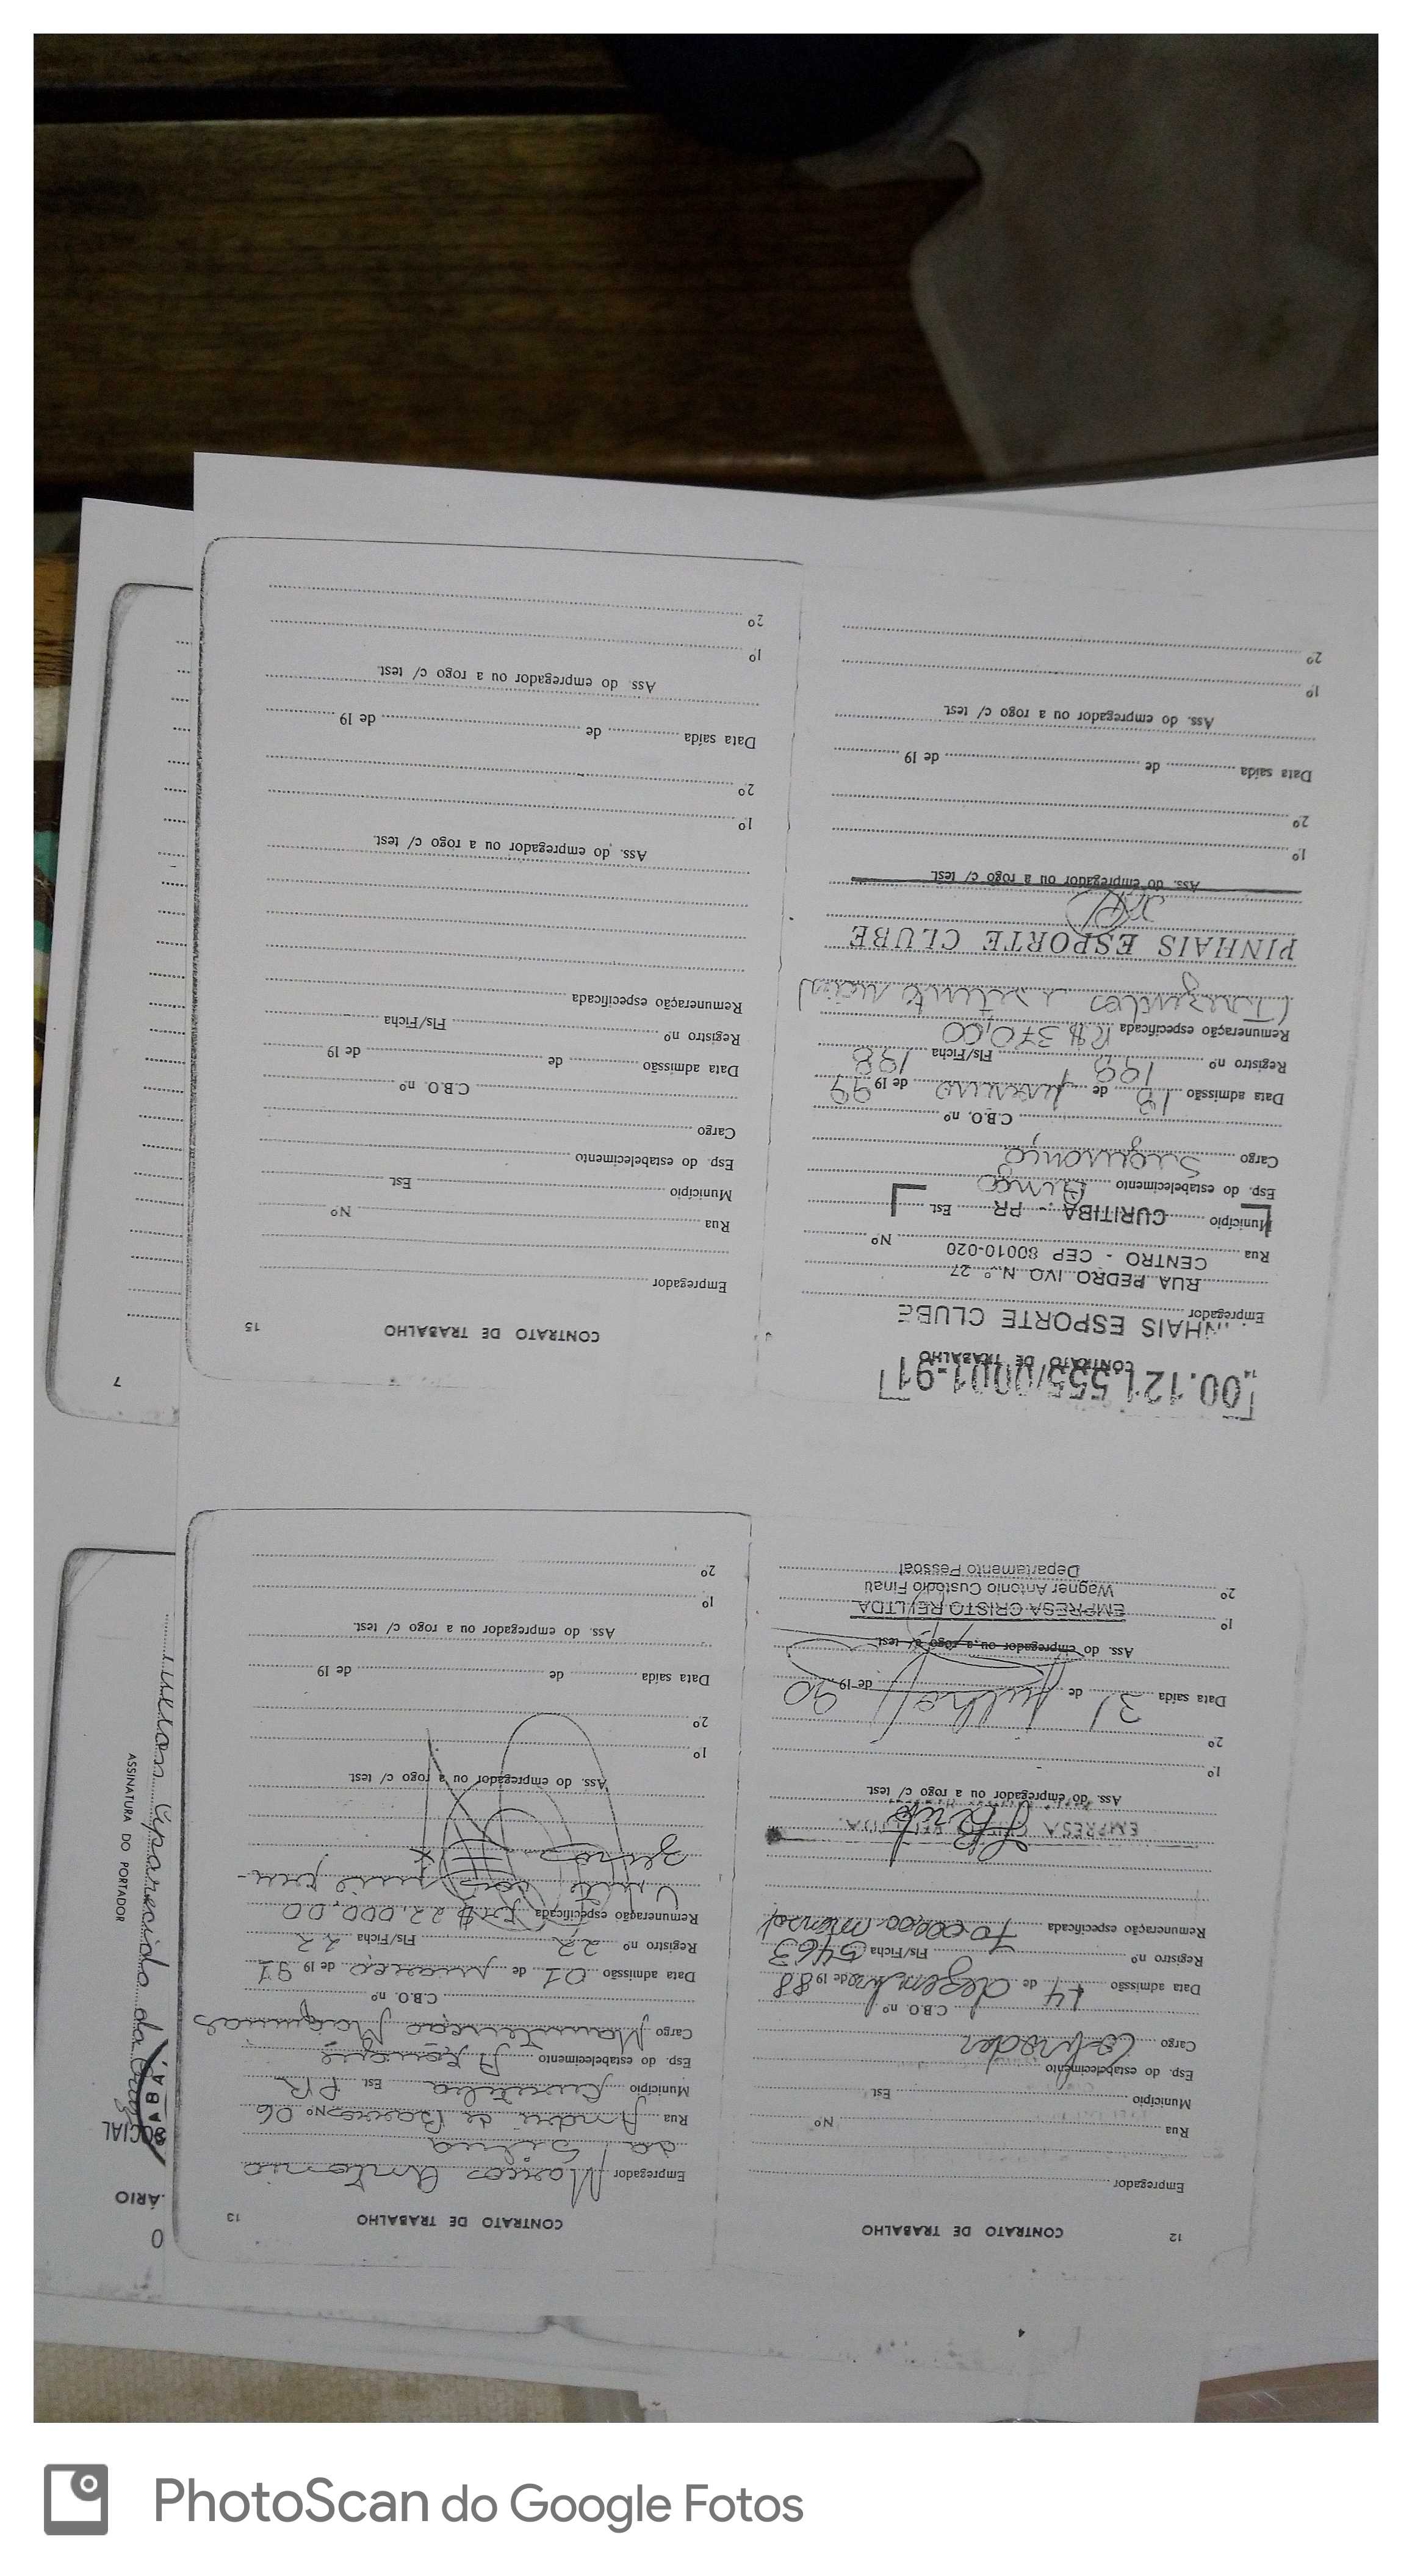 12
CONTRATO DE TRABALHO
Empregador
Rua Nº
Município Est.
Esp. do estabelecimento
Cargo Cobrador
C.B.O. nº
Data admissão 14 de dezembro de 19 88
Registro nº Fls/Ficha 5463
Remuneração especificada 70.000,00 mensal
EMPRESA CRISTO REI LTDA.
Ass. do empregador ou a rogo c/ test.
1º
2º
Data saída 31 de julho de 19 90
Ass. do empregador ou a rogo c/ test.
1º EMPRESA CRISTO REI LTDA
Wagner Antonio Custódio Finati
2º
Departamento Pessoal
CONTRATO DE TRABALHO 13
Empregador Marcos Antonio
da Silva
Rua André de Barros Nº 06
Município Curitiba Est. PR
Esp. do estabelecimento
Cargo Manutenção Maquinas
C.B.O. nº
Data admissão 01 de março de 19 91
Registro nº 22 Fls/Ficha 22
Remuneração especificada 22.000,00
Vinte dois mil cru-
zeiros
Ass. do empregador ou a rogo c/ test.
1º
2º
Data saída de de 19
Ass. do empregador ou a rogo c/ test.
1º
2º
00.121.555/0001-91
CONTRATO DE TRABALHO
NHAIS ESPORTE CLUBE
Empregador
RUA PEDRO IVO N.º 27
CENTRO - CEP 80010-020
Rua Nº
Município CURITIBA - PR Est.
Esp. do estabelecimento Bingo
Cargo Segurança
C.B.O. nº
Data admissão 18 de janeiro de 19 99
Registro nº 198 Fls/Ficha 198
Remuneração especificada R$ 370,00
(Trezentos e setenta reais)
PINHAIS ESPORTE CLUBE
Ass. do empregador ou a rogo c/ test.
1º
2º
Data saída de de 19
Ass. do empregador ou a rogo c/ test.
1º
2º
CONTRATO DE TRABALHO 15
Empregador
Rua Nº
Município Est.
Esp. do estabelecimento
Cargo
C.B.O. nº
Data admissão de de 19
Registro nº Fls/Ficha
Remuneração especificada
Ass. do empregador ou a rogo c/ test.
1º
2º
Data saída de de 19
Ass. do empregador ou a rogo c/ test.
1º
2º
7
ÁRIO
SOCIAL
Aparecido da
ASSINATURA DO PORTADOR
PhotoScan do Google Fotos